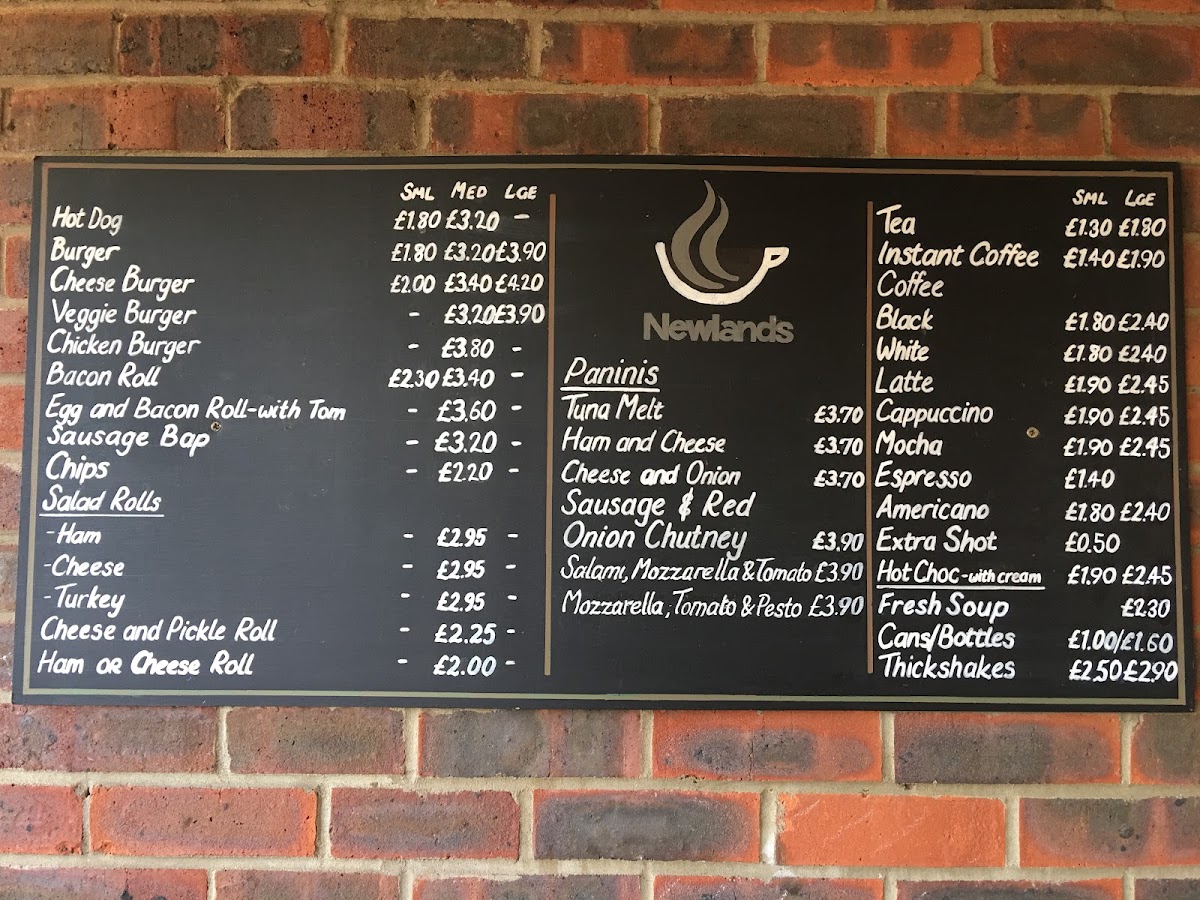 SML MED LGE
Hot Dog £1.80 £3.20 -
Burger £1.80 £3.20 £3.90
Cheese Burger £2.00 £3.40 £4.20
Veggie Burger - £3.20 £3.90
Chicken Burger - £3.80 -
Bacon Roll £2.30 £3.40 -
Egg and Bacon Roll-with Tom - £3.60 -
Sausage Bap - £3.20 -
Chips - £2.20 -
Salad Rolls
-Ham - £2.95 -
-Cheese - £2.95 -
-Turkey - £2.95 -
Cheese and Pickle Roll - £2.25 -
Ham OR Cheese Roll - £2.00 -
Newlands
Paninis
Tuna Melt £3.70
Ham and Cheese £3.70
Cheese and Onion £3.70
Sausage & Red
Onion Chutney £3.90
Salami, Mozzarella & Tomato £3.90
Mozzarella, Tomato & Pesto £3.90
SML LGE
Tea £1.30 £1.80
Instant Coffee £1.40 £1.90
Coffee
Black £1.80 £2.40
White £1.80 £2.40
Latte £1.90 £2.45
Cappuccino £1.90 £2.45
Mocha £1.90 £2.45
Espresso £1.40
Americano £1.80 £2.40
Extra Shot £0.50
Hot Choc - with cream £1.90 £2.45
Fresh Soup £2.30
Cans/Bottles £1.00/£1.60
Thickshakes £2.50 £2.90